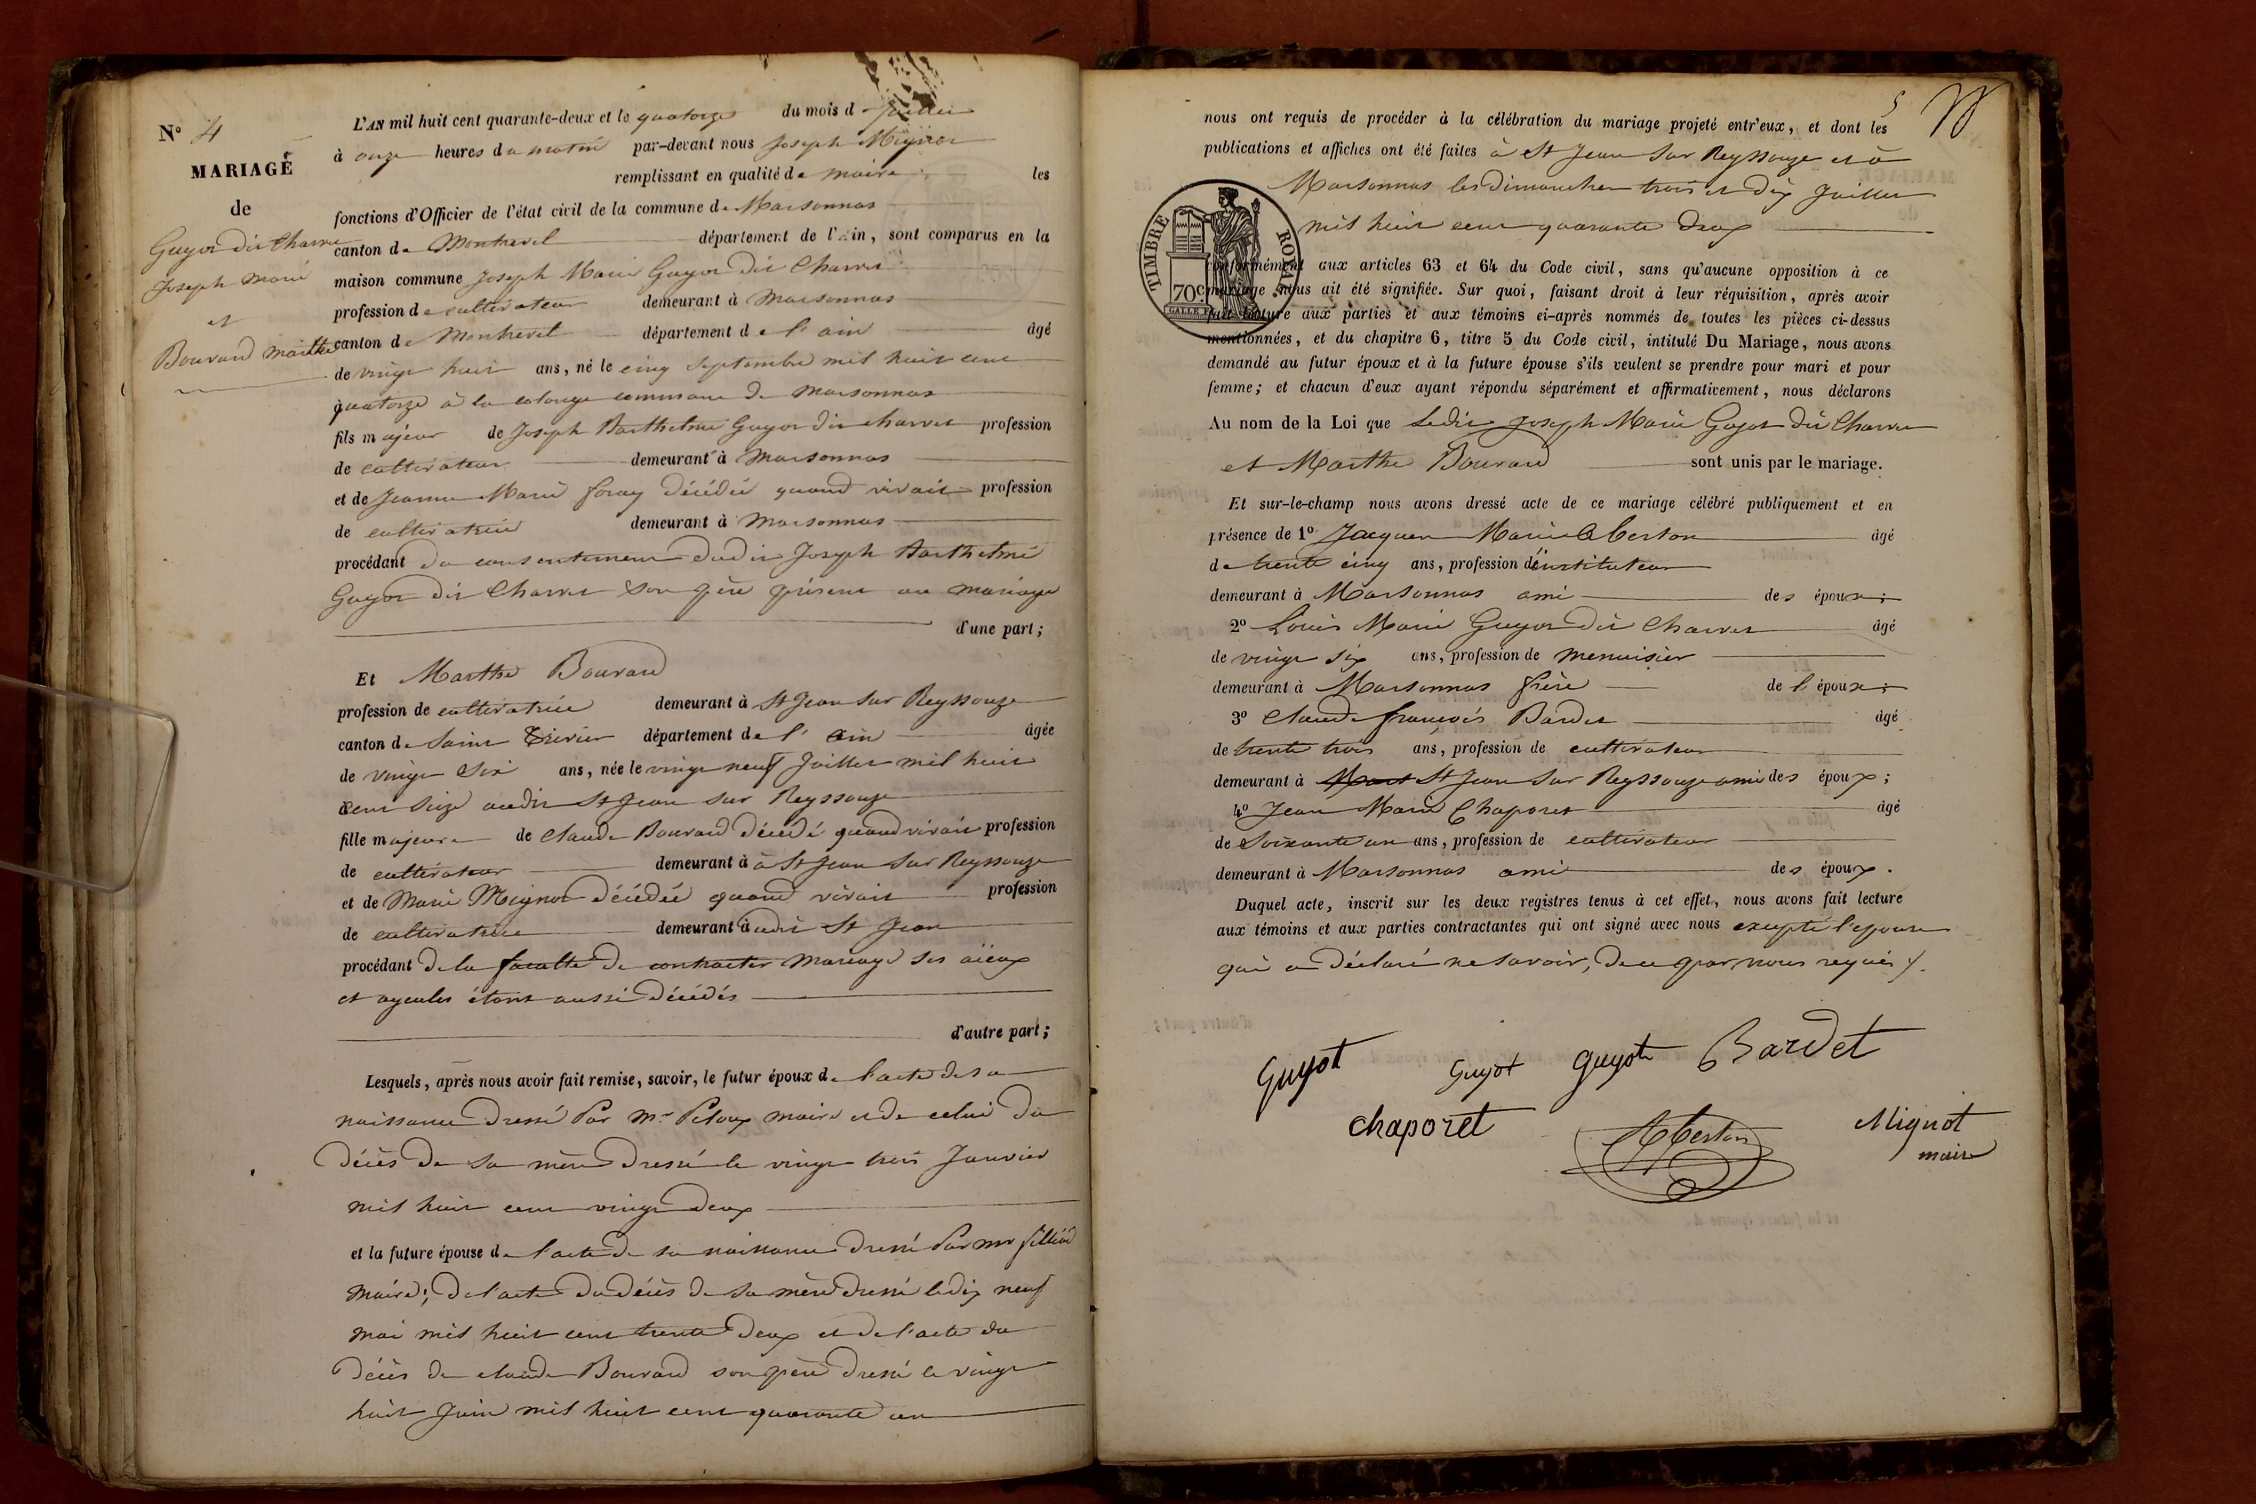 N° 4
MARIAGE
de
Guyot dit Charvet
Joseph Marie
et
Bouvard Marthe
L'AN mil huit cent quarante-deux et le quatorze du mois de Juillet
à onze heures du matin par-devant nous Joseph Mignot
remplissant en qualité de maire les
fonctions d'Officier de l'état civil de la commune de Marsonnas
canton de Montrevel département de l'Ain, sont comparus en la
maison commune Joseph Marie Guyot dit Charvet
profession de cultivateur demeurant à Marsonnas
canton de Montrevel département de l'ain âgé
de vingt huit ans, né le cinq septembre mil huit cent
quatorze à la colonge commune de Marsonnas
fils majeur de Joseph Barthelmé Guyot dit charvet profession
de cultivateur demeurant à Marsonnas
et de Jeanne Marie foray décédée quand vivait profession
de cultivatrice demeurant à Marsonnas
procédant du consentement dudit Joseph Barthelmé
Guyot dit Charvet son père présent au mariage
d'une part;
Et Marthe Bouvard
profession de cultivatrice demeurant à St Jean sur Reyssouze
canton de Saint Trivier département de l'ain âgée
de vingt six ans, née le vingt neuf Juillet mil huit
cent seize audit St Jean sur Reyssouze
fille majeure de Claude Bouvard décédé quand vivait profession
de cultivateur demeurant à à St Jean sur Reyssouze
et de Marie Mignot décédée quand vivait profession
de cultivatrice demeurant audit St Jean
procédant de la faculté de contracter mariage ses aïeux
et ayeules étant aussi décédés
d'autre part;
Lesquels, après nous avoir fait remise, savoir, le futur époux de l'acte de sa
naissance dressé Par Mr Peloux maire et de celui du
décès de sa mère dressé le vingt trois Janvier
mil huit cent vingt deux
et la future épouse de l'acte de sa naissance dressé Par mr filliod
maire; de l'acte du décès de sa mère dressé le dix neuf
mai mil huit cent trente deux et de l'acte du
décès de claude Bouvard son père dressé le vingt
huit Juin mil huit cent quarante un
5
nous ont requis de procéder à la célébration du mariage projeté entr'eux, et dont les
publications et affiches ont été faites à St Jean sur Reyssouze et à
Marsonnas les dimanches trois et dix Juillet
mil huit cent quarante deux
TIMBRE ROYAL
70c
conformément aux articles 63 et 64 du Code civil, sans qu'aucune opposition à ce
mariage nous ait été signifiée. Sur quoi, faisant droit à leur réquisition, après avoir
fait lecture aux parties et aux témoins ci-après nommés de toutes les pièces ci-dessus
mentionnées, et du chapitre 6, titre 5 du Code civil, intitulé Du Mariage, nous avons
demandé au futur époux et à la future épouse s'ils veulent se prendre pour mari et pour
femme; et chacun d'eux ayant répondu séparément et affirmativement, nous déclarons
Au nom de la Loi que Ledit Joseph Marie Guyot dit Charvet
et Marthe Bouvard sont unis par le mariage.
Et sur-le-champ nous avons dressé acte de ce mariage célébré publiquement et en
présence de 1° Jacques Marie Aberton âgé
de trente cinq ans, profession d'instituteur
demeurant à Marsonnas ami des époux;
2° Louis Marie Guyot dit Charvet âgé
de vingt six ans, profession de menuisier
demeurant à Marsonnas frère de l'époux;
3° Claude françois Bardet âgé
de trente trois ans, profession de cultivateur
demeurant à St Jean sur Reyssouze ami des époux;
4° Jean Marie Chaporet âgé
de soixante un ans, profession de cultivateur
demeurant à Marsonnas ami des époux.
Duquel acte, inscrit sur les deux registres tenus à cet effet, nous avons fait lecture
aux témoins et aux parties contractantes qui ont signé avec nous excepté l'epouse
qui a déclaré ne savoir, de ce par nous requis
Guyot Guyot guyot Bardet
chaporet Aberton Mignot
maire